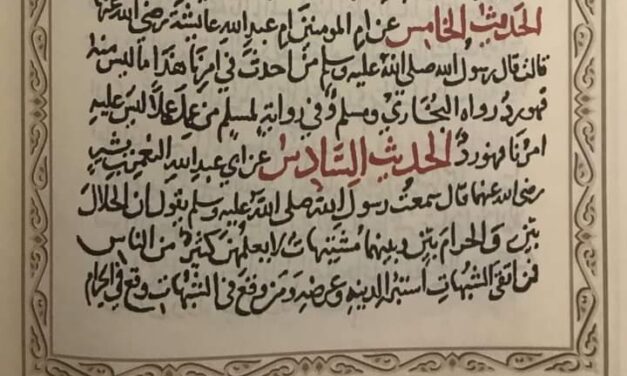 الحديث الخامس عن ام المومنين ام عبد الله عائشة رضى الله عنها
قالت قال رسول الله صلى الله عليه وسلم من احدث في امرنا هذا ما ليس منه
فهو رد رواه البخاري ومسلم وفي رواية لمسلم من عمل عملا ليس عليه
امرنا فهو رد الحديث السادس عن ابي عبد الله النعمن بن بشير
رضى الله عنهما قال سمعت رسول الله صلى الله عليه وسلم يقول ان الحلال
بين و الحرام بين وبينهما مشتبهات لا يعلمهن كثير من الناس
فمن اتقى الشبهات استبرا لدينه وعرضه ومن وقع في الشبهات وقع في الحرام